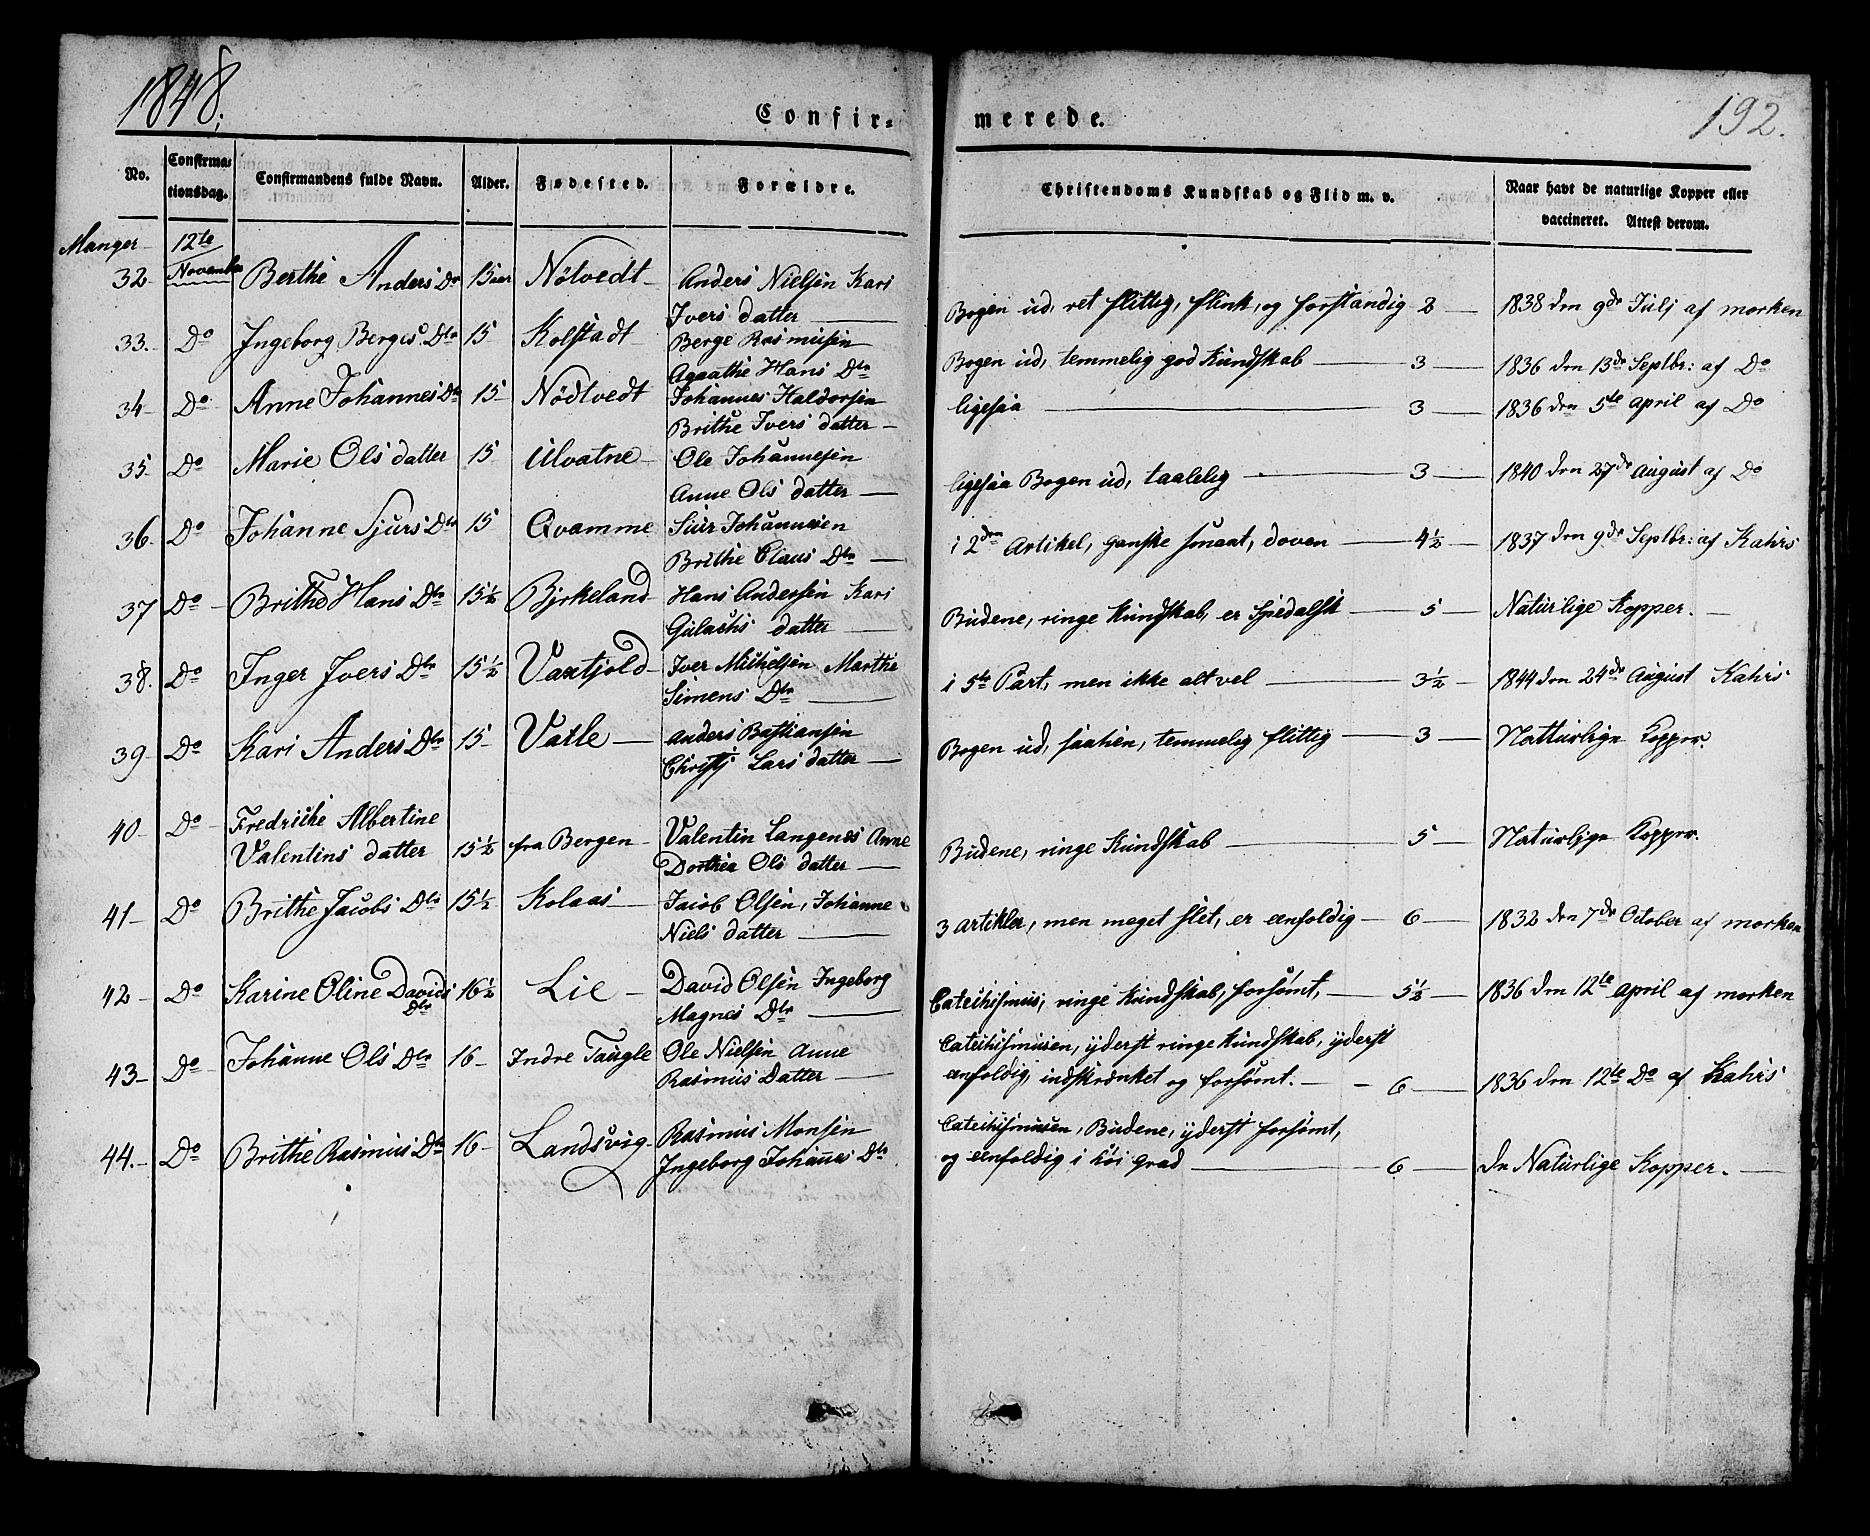 1848;
Confir-
merede.
192.
No.
Confirma-
tionsdag.
Confirmandens fulde Navn.
Alder.
Fødested.
Forældre.
Christendoms Kundskab og Flid m. v.
Naar havt de naturlige Kopper eller
vaccineret. Attest derom.
Manger
12te
32 Novemb. Berthe Anders Dr 15 aar Nötvedt Anders Nielsen Kari
Ivers datter
Bogen ud, ret flittig, flink, og forstandig 2 1838 den 9de Julj af morken
33. Do Ingeborg Berges Dtr 15 Kolstadt Berge Rasmusen
Agaathe Hans Dtr
Bogen ud, temmelig god Kundskab 3 1836 den 13de Septbr: af Do
34 Do Anne Johannes Dtr 15 Nödtvedt Johannes Haldorsen
Brithe Ivers datter
ligesaa 3 1836 den 5te April af Do
35 Do Marie Ols datter 15 Ulvatne Ole Johannesen
Anne Ols datter
ligesaa Bogen ud, taalelig 3 1840 den 27de August af Do
36 Do Johanne Sjurs Dtr 15 Qvamme Siur Johannesen
Brithe Claus Dtr
i 2den Artikel, ganske smaat, doven 4½ 1837 den 9de Septbr: af Kahrs
37 Do Brithe Hans Dtr 15½ Byrkeland Hans Andersen Kari
Gulachs datter
Budene, ringe Kundskab, er Spedalsk 5 Naturlige Kopper.
38. Do Inger Ivers Dtr 15½ Vaxtjold Iver Michelsen Marthe
Simens Dtr
i 5te Part, men ikke alt vel 3½ 1844 den 24de August Kahrs
39 Do Kari Anders Dtr 15 Vatle Anders Bastiansen
Christj Lars datter
Bogen ud, saahen, temmelig flittig 3 Natturlige Kopper.
40 Do Fredriche Albertine
Valentins datter 15½ fra Bergen Valentin Langenes Anne
Dorthea Ols datter
Budene, ringe Kundskab 5 Naturlige Kopper.
41 Do Brithe Jacobs Dtr 15½ Kolaas Jacob Olsen, Johanne
Niels datter
3 Artikler, men meget slet, er enfoldig 6 1832 den 7de October af morken
42 Do Karine Oline Davids
Dtr 16½ Lie David Olsen Ingeborg
Magnes Dtr
Catechismus, ringe Kundskab, forsömt, 5½ 1836 den 12te April af morken
43 Do Johanne Ols Dtr 16 Indre Taugle Ole Nielsen Anne
Rasmus Datter
Catechismusen, yderst ringe Kundskab, yderst
enfoldig, indskrænket og forsömt. 6 1836 den 12te Do af Kahrs
44. Do Brithe Rasmus Dtr 16 Landsvig Rasmus Monsen
Ingeborg Johannes Dtr
Catechismusen, Budene, yderst forsömt,
og eenfoldig i höi Grad 6 de Naturlige Kopper.